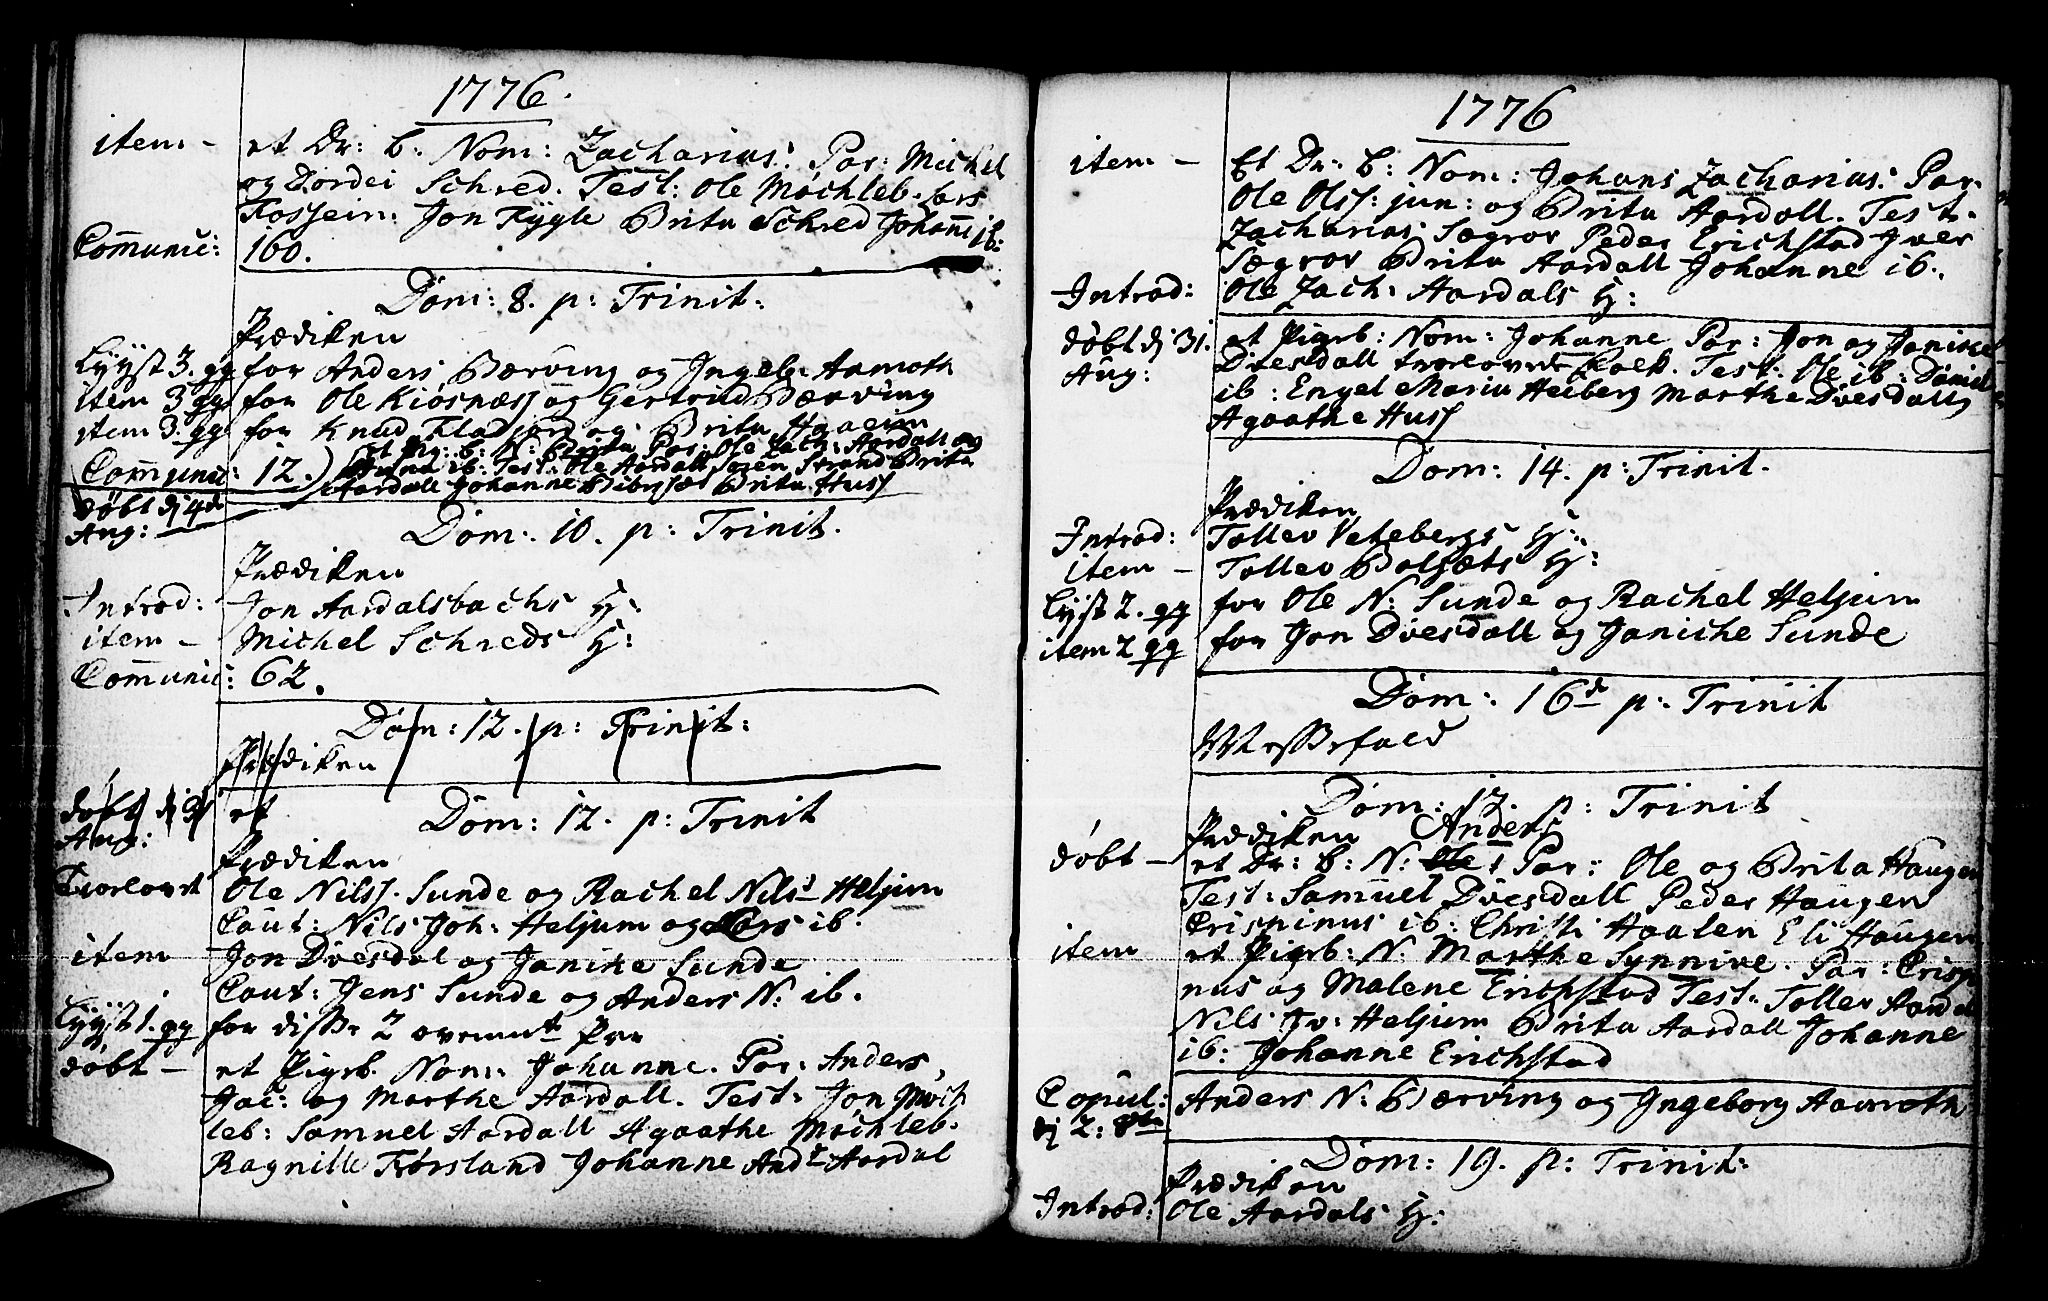 1776.
item - et Dr: b: Nom: Zacharias. Par: Michel
og Dordei Schred. Test: Ole Møchleb. Lars
Fossein: Jon Flygle Brita Schred Johanne ib:
Communic: 160.
Dom: 8. p: Trinit:
Prædiken
Lyyst 3. gg for Anders Bærving og Ingeb: Aamoth
item 3 gg for Ole Kiøsnæs og Gertrud Bærving
item 3. gg for Knud Fladjord og Brita Haaeim
Communic: 12.
døbt dj 4de Aug: et Pig: b: N: Brita Par: Ole Zach: Aardall og
Anna ib: Test: Ole Aardall Søren Strand Brita
Aardall Johanne Brita Huss
Dom: 10. p: Trinit.
Prædiken
Introd: Jon Aardalsbachs H:
item - Michel Schreds H:
Communic: 62.
Dom: 12. p: Trinit:
Prædiken
døbt dj
Aug: et
Dom: 12. p: Trinit
Prædiken
Troelovet Ole Nilss. Sunde og Rachel Nilsd Heljum
Caut: Nils Joh: Heljum og Lars ib.
item Jon Dvesdal og Janike Sunde
Caut: Jens Sunde og Anders N: ib.
Lyyst 1. gg for disse 2 ovennte Par
døbt - et Pigeb. Nom: Johanne. Par: Anders
Jac: og Marthe Aardall. Test: Jon Møch
leb: Samuel Aardall Agaathe Møchleb.
Ragnille Førsland Johanne Andd Aardal
1776
item - Et Dr: b: Nom: Johans Zacharias. Par:
Ole Olss: jun: og Brita Aardall. Test:
Zacharias Sægror Peder Erichstad Iver
Sægror Brita Aardall Johanne ib.
Introd: Ole Zach: Aardals H:
døbt dj 31. Aug: et Pigeb: Nom: Johanne Par: Jon og Janike
Dvesdall troelovede Folck. Test: Ole ib: Daniel
ib: Engel Maria Heiberg Marthe Dvesdall
Agaathe Huss
Dom: 14. p: Trinit.
Prædiken
Introd: Tollev Vetebergs H:
item - Tollev Bolsæts H:
Lyst 2. gg for Ole N: Sunde og Rachel Heljum
item 2 gg for Jon Dvesdall og Janiche Sunde
Dom: 16d p: Trinit
Messefald
Dom: 17. p: Trinit
Prædiken Anders
døbt - et Dr: b: N: Ole Par: Ole og Brita Haugen
Test: Samuel Dvesdall Peder Haugen
Crispinus ib: Christi Haalen Eli Haugen
item et Pigeb: N: Marthe Synnive. Par: Crispi
nus og Malene Erichstad Test: Tollev Aardal
Nils Jo: Heljum Brita Aardall Johanne
ib: Johanne Erichstad
Copul: dj 2: 8br Anders N: Bærving og Ingeborg Aamoth
Dom: 19. p: Trinit:
Prædiken
Introd: Ole Aardals H: